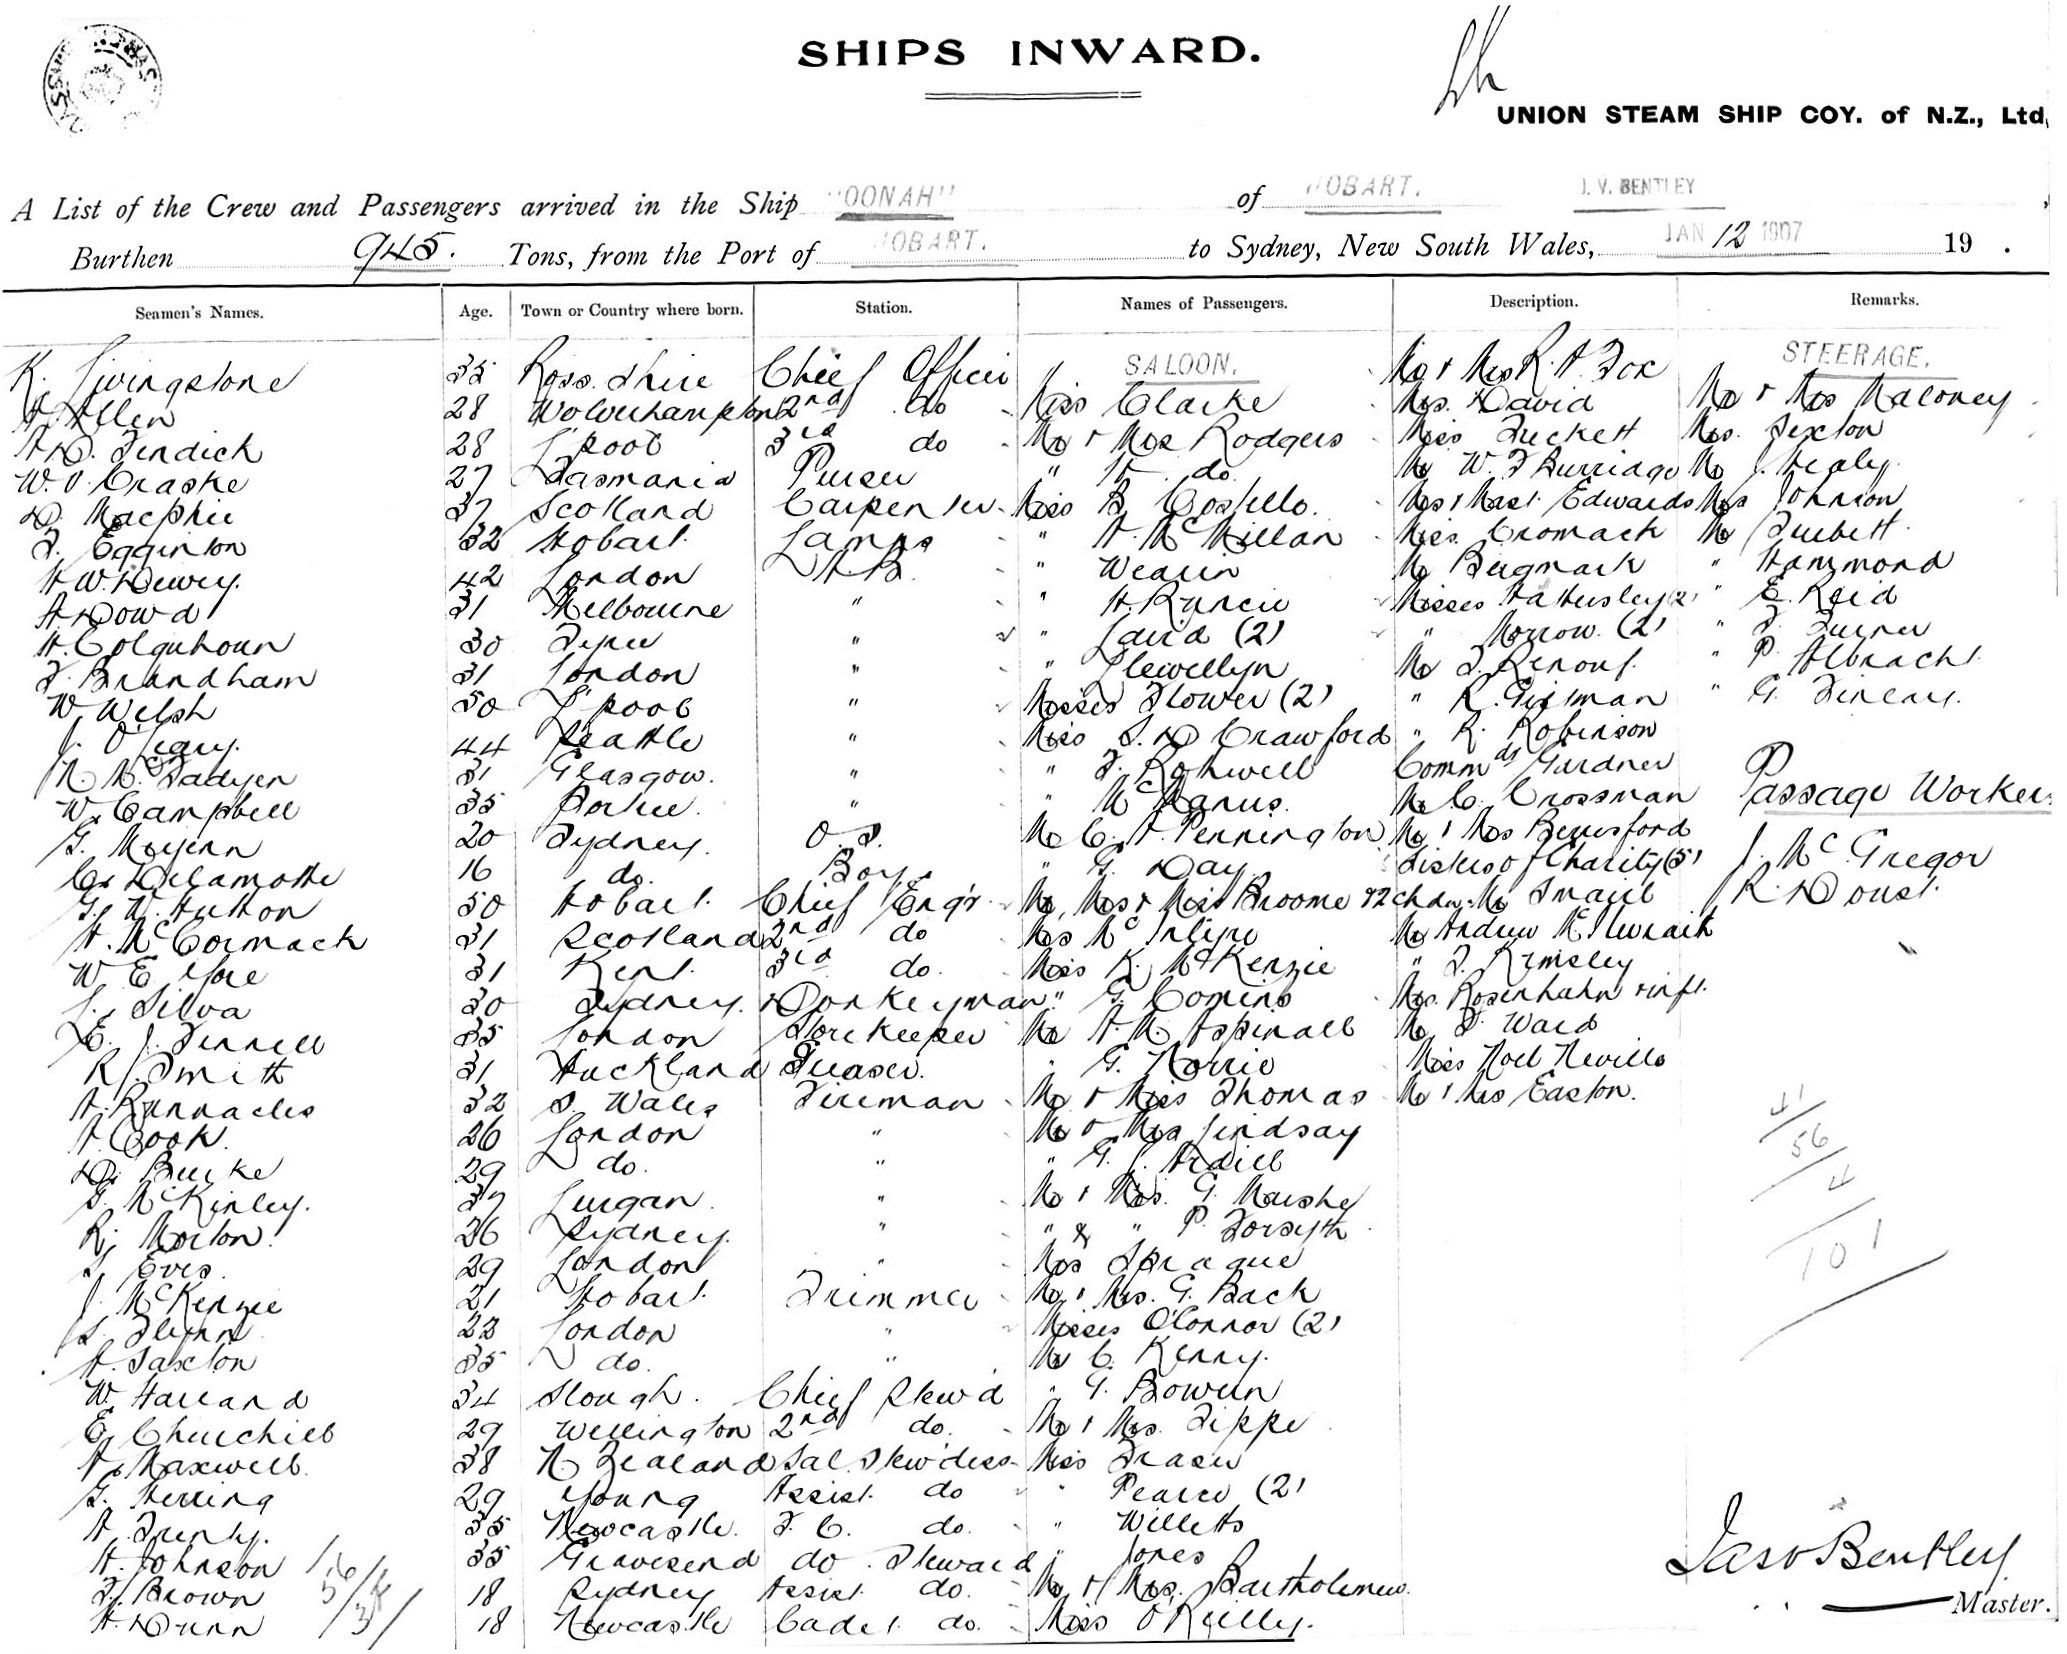 SHIPS INWARD.
UNION STEAM SHIP COY. of N.Z., Ltd.
A List of the Crew and Passengers arrived in the Ship "OONAH" of HOBART. J. V. BENTLEY
Burthen 945. Tons, from the Port of HOBART. to Sydney, New South Wales, JAN 12 1907 19 .
Seamen's Names. Age. Town or Country where born. Station. Names of Passengers. Description. Remarks.
SALOON. STEERAGE.
K. Livingstone 35 Ross. Shire Chief Officer Mr & Mrs R. A. Fox
A. Allen 28 Wolverhampton 2nd do Miss Clarke Mrs. David Mr & Mrs Maloney
A. D. Fendick 28 L'pool 3rd do Mr & Mrs Rodgers Miss Tuckett Mrs. Sexton
W. O. Craske 27 Tasmania Purser " H. do. Mr W. T. Burridge Mr J. Healy
D. Macphie 37 Scotland Carpenter Miss B. Costello. Mrs & Mast. Edwards Mrs Johnson
F. Egginton 32 Hobart. Lamps " A. McMillan Miss. Cromack Mr Turbett
H. W. Dewey. 42 London A.B. " Wearin Mr Bergmark " Hammond
A. Dowd 31 Melbourne " " H. Runcie Misses Hattersley (2) " E. Reid
H. Colquhoun 30 Tyree " " Laird (2) " Morrow. (2) " F. Turner
F. Brundham 31 London " " Llewellyn Mr F. Renouf. " P. Albracht.
W. Welsh 50 L'pool " Misses Flower (2) " R. Gilman " G. Finlay.
J. O'Leary. 44 Seattle " Miss S. D. Crawford " R. Robinson
N. McFadyen 31 Glasgow. " " F. Rothwell Commdt Gardner Passage Workers
W. Campbell 35 " " McManus. Mr C. Crossman
G. 20 Sydney. O.S. Mr C. A. Pennington Mr & Mrs Berresford
C. Delamothe 16 do. Boy. " G. Day Sisters of Charity (5) J. McGregor
G. W. Hutton 50 Hobart. Chief Eng'r Mr, Mrs & Miss Broome & 2 chdn. Mr Smail R. Doust.
A. McCormack 31 Scotland 2nd do Mrs McIntyre Mr Andrew McIlwraith
W. E. Yore 31 Kent. 3rd do. Miss K. McKenzie " F. Kemsley
J. Silva 30 Sydney. Donkeyman " G. Comins Mrs. Rosenhahn & inft.
E. J. Fennell 35 London Storekeeper Mr A. M. Aspinall Mr F. Ward
R. Smith 31 Auckland Greaser. " G. Norrie Miss Noel Neville
A. Runnacles 32 S. Wales Fireman Mr & Miss Thomas Mr & Mrs Easton.
A. Cook. 26 London " Mr & Mrs Lindsay
D. Burke 29 do. " " G. J. Ardill
S. McKinley. 37 Lurgan. " Mr & Mrs. G. Marshe
R. Morton. 26 Sydney. " " & " P. Forsyth
J. Eves 29 London " Mrs Sprague
J. McKenzie 21 Hobart. Trimmer Mr & Mrs. G. Back
J. Flynn 23 London " Misses O'Connor (2)
A. Saxton 35 do. " Mr C. Kenny.
W. Harland 34 Slough. Chief Stew'd " G. Bowern
E. Churchill 29 Wellington 2nd do. Mr & Mrs. Tippe
A. Maxwell. 38 N. Zealand Sal. Stew'dess Miss Fraser
G. Herring 29 Young Assist. do " Pearce (2)
A. 35 Newcastle. F. C. do. " Willetts
A. Johnson 35 Gravesend do. Steward " Jones
F. Brown 18 Sydney Assist. do. Mr & Mrs. Bartholomew.
A. Dunn 18 Newcastle Cadet do. Miss O'Reilly.
41
56
4
101
Jas V Bentley
Master.